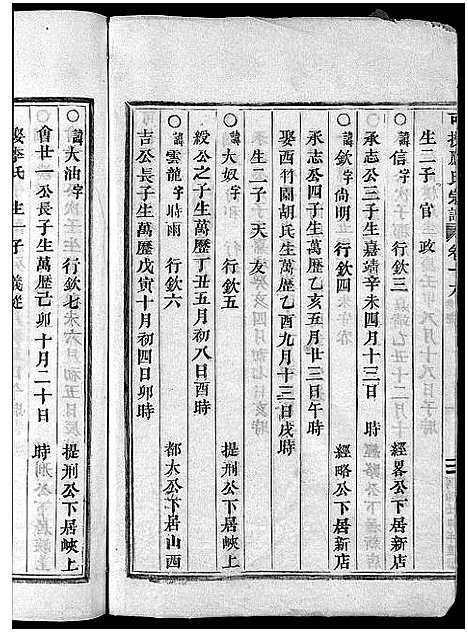 生二子 官 政
○諱信字 行欽三 經畧公下居新店
承志公三子生嘉靖辛未四月十三日 時
○諱欽字尚明 行欽四 經略公下居新店
承志公四子生萬歷乙亥五月廿三日午時
娶西竹園胡氏生萬歷乙酉九月十三日戌時
生二子 天 友
○諱大奴字 行欽五 提刑公下居峽上
綬公之子生萬歷丁丑五月初八日酉時
○諱雲龍字時雨 行欽六 都大公下居山西
吉公長子生萬歷戊寅十月初四日卯時
○諱大油字 行欽七 提刑公下居峽上
會廿一公長子生萬歷己卯十月二十日 時
娶李氏 生 子